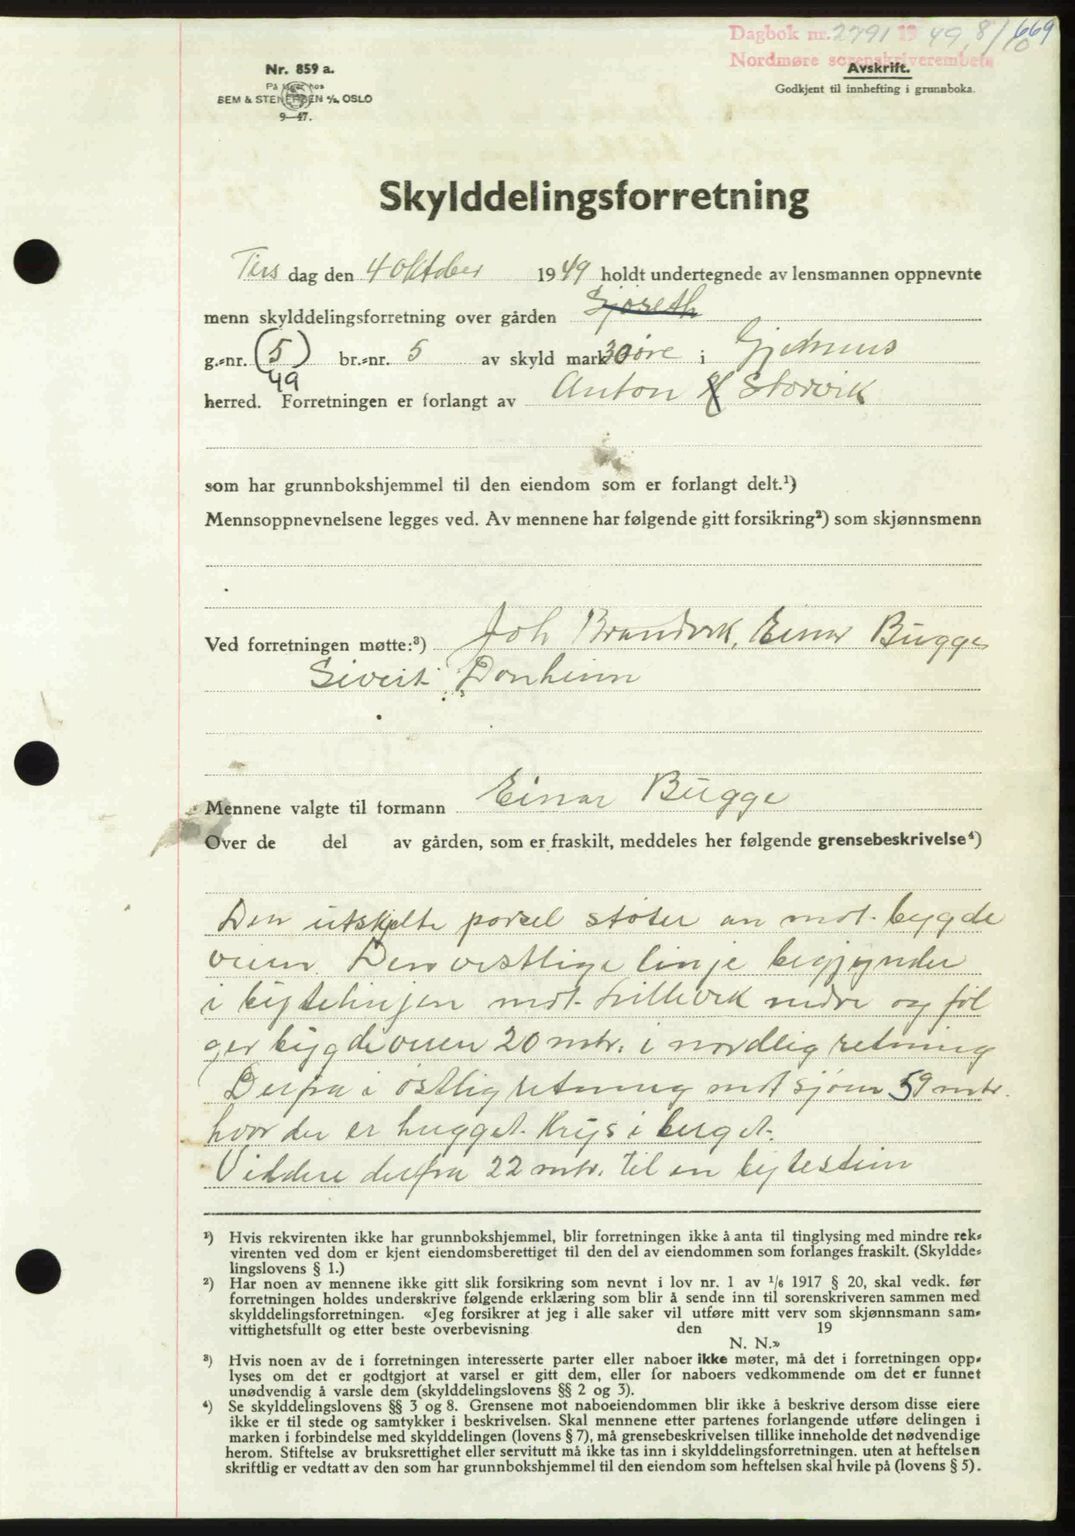 Dagbok nr. 2791 19 49, 8/10 669
Nordmøre sorenskriverembete
Nr. 859 a.
På lager hos
SEM & STENERSEN A/S, OSLO
9—47.
Avskrift.
Godkjent til innhefting i grunnboka.
Skylddelingsforretning
Tirs dag den 4 oktober 1949 holdt undertegnede av lensmannen oppnevnte
menn skylddelingsforretning over gården Sjøseth
g.-nr. (5) br.-nr. 5 av skyld mark 30 øre i Gjemnes
49
herred. Forretningen er forlangt av Anton Storvik
som har grunnbokshjemmel til den eiendom som er forlangt delt.¹)
Mennsoppnevnelsene legges ved. Av mennene har følgende gitt forsikring²) som skjønnsmenn
Ved forretningen møtte:³) Joh Brandvik, Einar Bugge
Sivert Donheim
Mennene valgte til formann Einar Bugge
Over de del av gården, som er fraskilt, meddeles her følgende grensebeskrivelse⁴)
Den utskjelte parsel støter an mot bygde
veien. Den vestlige linje begjynder
i bytelinjen mot Lillevik nedre og føl
ger bygdeveien 20 mtr. i nordlig retning
Derfra i østlig retning mot sjøen 59 mtr.
hvor der er hugget Krys i berget.
Viddere derfra 22 mtr. til en bytestein
¹) Hvis rekvirenten ikke har grunnbokshjemmel, blir forretningen ikke å anta til tinglysing med mindre rek-
virenten ved dom er kjent eiendomsberettiget til den del av eiendommen som forlanges fraskilt. (Skyldde-
lingslovens § 1.)
²) Har noen av mennene ikke gitt slik forsikring som nevnt i lov nr. 1 av ¹/₆ 1917 § 20, skal vedk. før
forretningen holdes underskrive følgende erklæring som blir å sende inn til sorenskriveren sammen med
skylddelingsforretningen. «Jeg forsikrer at jeg i alle saker vil utføre mitt verv som skjønnsmann sam-
vittighetsfullt og etter beste overbevisning den 19
N. N.»
³) Hvis noen av de i forretningen interesserte parter eller naboer ikke møter, må det i forretningen opp-
lyses om det er godtgjort at varsel er gitt dem, eller for naboers vedkommende om det er funnet
unødvendig å varsle dem (skylddelingslovens §§ 2 og 3).
⁴) Se skylddelingslovens §§ 3 og 8. Grensene mot naboeiendommen blir ikke å beskrive dersom disse eiere
ikke er til stede og samtykker i beskrivelsen. Skal mennene etter partenes forlangende utføre delingen i
marken i forbindelse med skylddelingen (lovens § 7), må grensebeskrivelsen tillike inneholde det nødvendige
herom. Stiftelse av bruksrettighet eller servitutt må ikke tas inn i skylddelingsforretningen, uten at heftelsen
skriftlig er vedtatt av den som har grunnbokshjemmel til den eiendom som heftelsen skal hvile på (lovens § 5).